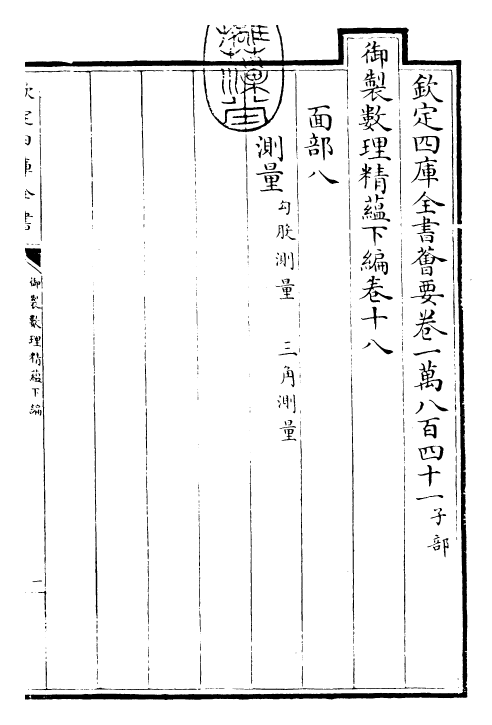 欽定四庫全書薈要卷一萬八百四十一子部
御製數理精蘊下編卷十八
面部八
測量勾股測量 三角測量
欽定四庫全書
御製數理精蘊下編
一